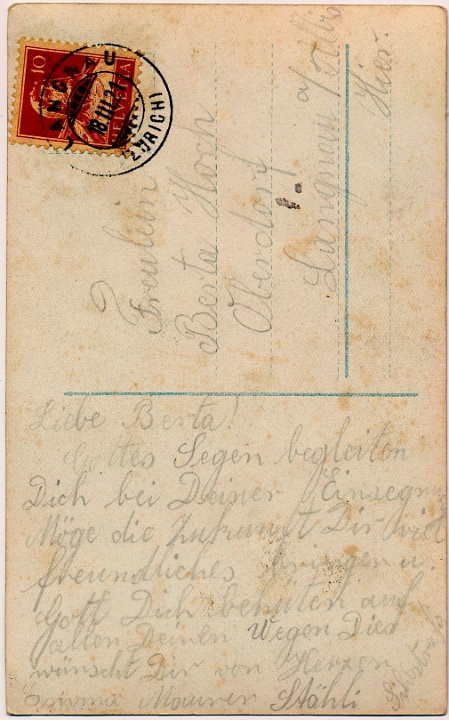 10
HELVETIA
LANGNAU
18.III.21
(ZÜRICH)
Freulein
Berta Hoch
Oberdorf
Langnau a/Albis
Hier.
Liebe Berta!
Gottes Segen begleiten
Dich bei Deiner Einsegnug
Möge die Zukunft Dir viel
freundliches bringen u.
Gott Dich behüten auf
allen Deinen Wegen Dies
wünscht Dir von Herzen
Emma Maurer Stähli